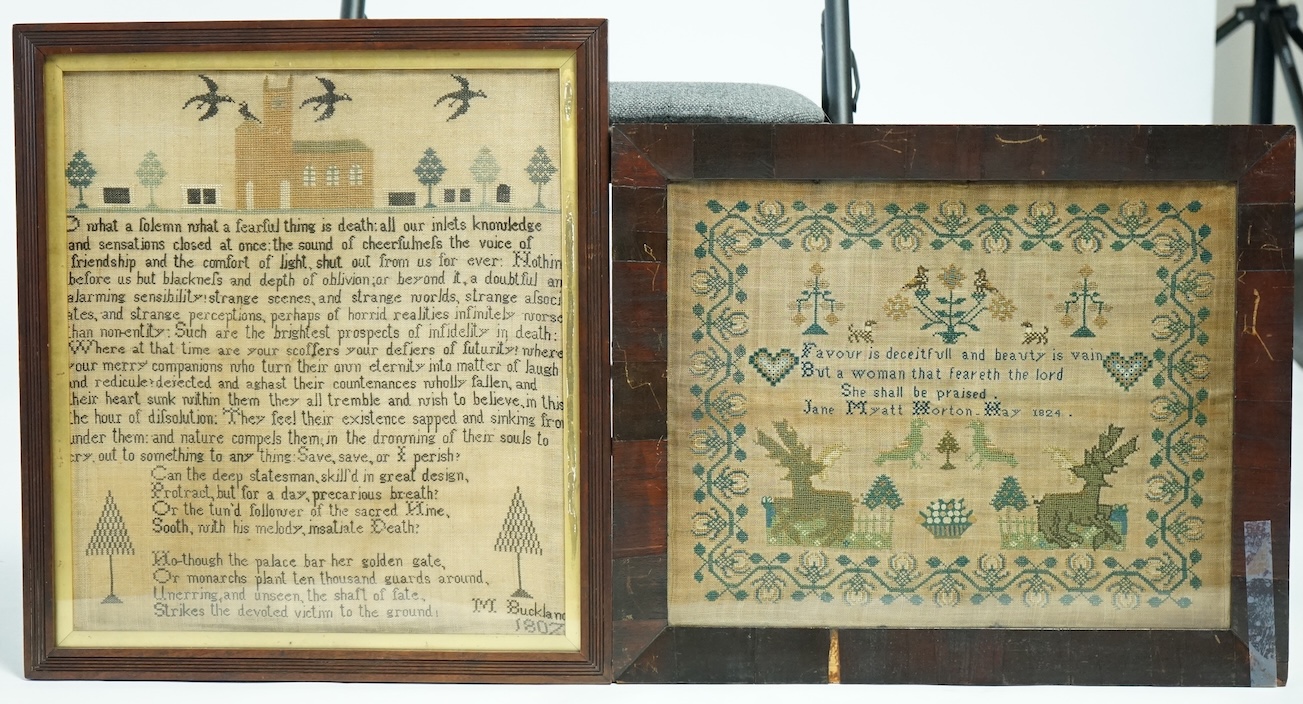 O what a ſolemn what a fearful thing is death: all our inlets knowledge
and sensations closed at once: the sound of cheerfulneſs the voice of
friendship and the comfort of light, shut out from us for ever: Nothin
before us but blackneſs and depth of oblivion, or beyond it, a doubtful an
alarming sensibility! strange scenes, and strange worlds, strange aſsoci
ates, and strange perceptions, perhaps of horrid realities infinitely worse
than non-entity: Such are the brightest prospects of infidelity in death:
Where at that time are your scoffers your defiers of futurity! where
your merry companions who turn their own eternity into matter of laugh
and redicule? dejected and aghast their countenances wholly fallen, and
their heart sunk within them they all tremble and wish to believe, in this
the hour of diſsolution: They feel their existence sapped and sinking fro
under them: and nature compels them, in the dronming of their souls to
cry, out to something to any thing: Save, save, or I perish?
Can the deep statesman, skill'd in great design,
Protract, but for a day, precarious breath?
Or the tun'd follower of the sacred Nine,
Sooth, with his melody, insatiate Death?
No-though the palace bar her golden gate,
Or monarchs plant ten thousand guards around,
Unerring, and unseen, the shaft of fate,
Strikes the devoted victim to the ground!
M Buckland
1802
Favour is deceitfull and beauty is vain
But a woman that feareth the lord
She shall be praised.
Jane Myatt Horton-Hay 1824..